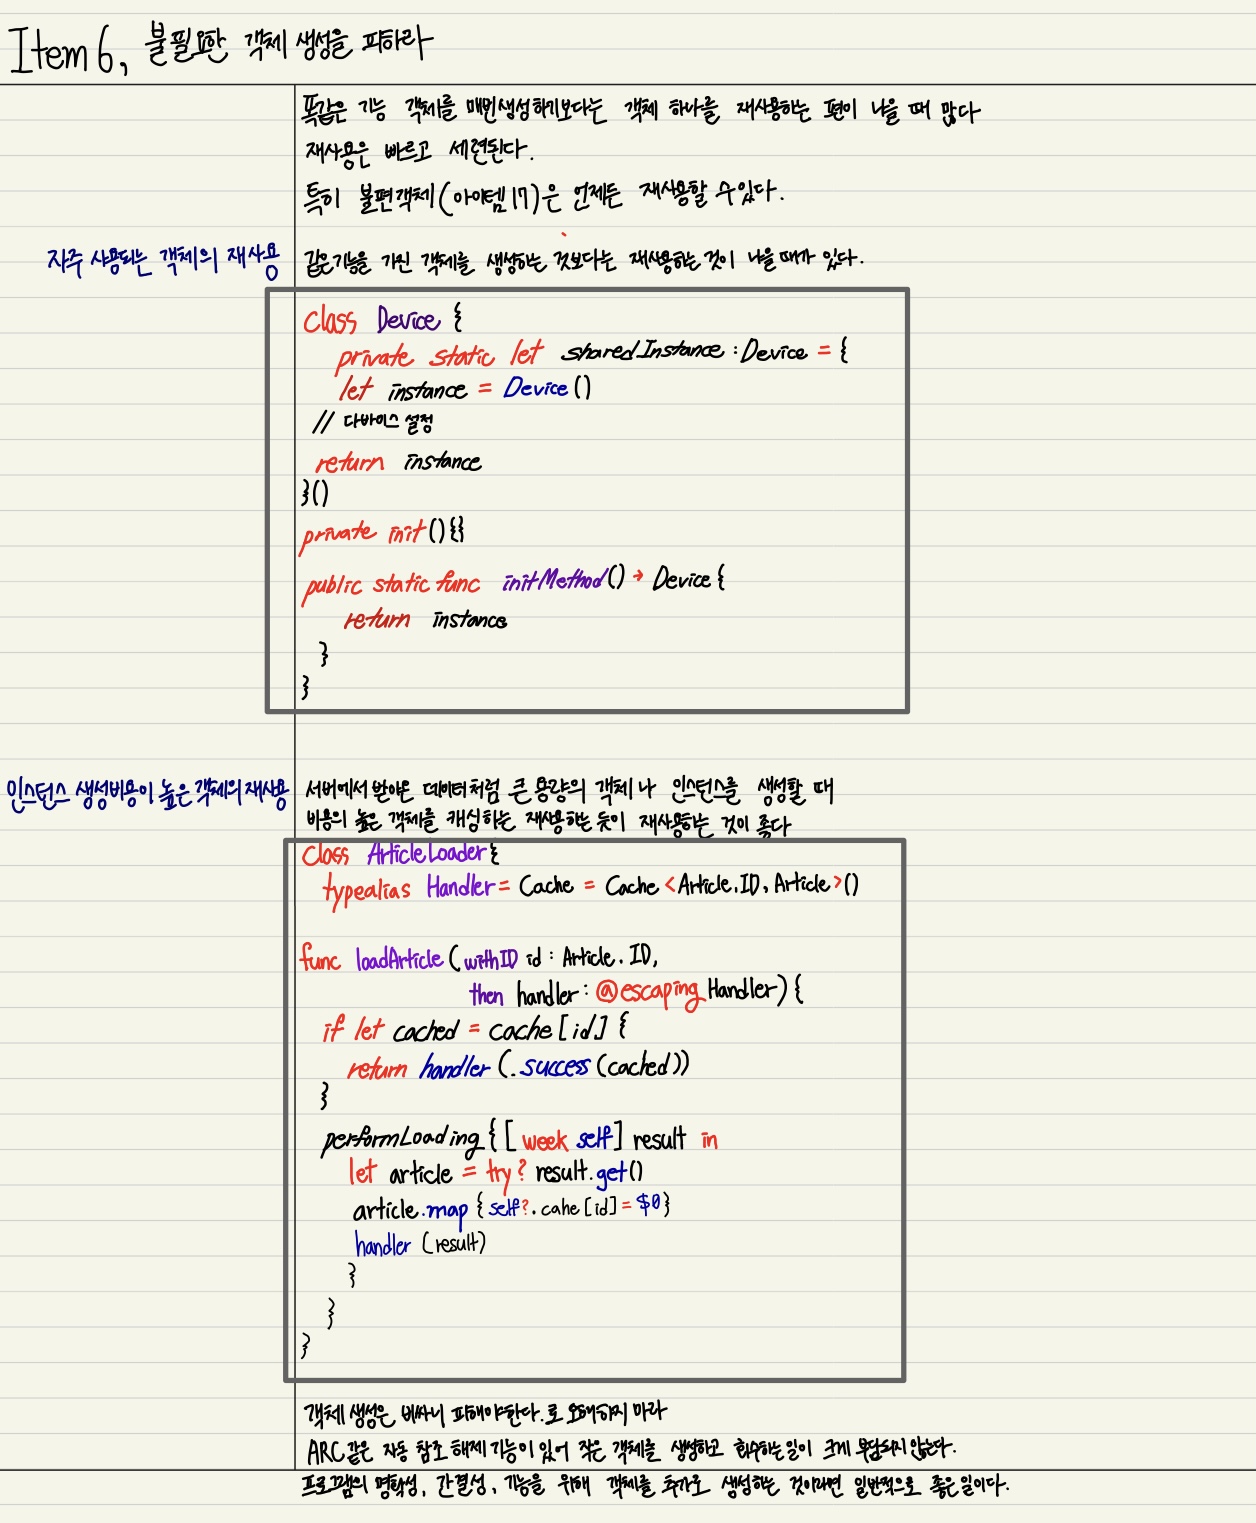 Item 6, 불필요한 객체 생성을 피하라
똑같은 기능 객체를 매번생성하기보다는 객체 하나를 재사용하는 편이 나을 때 많다
재사용은 빠르고 세련된다.
특히 불편객체(아이템17)은 언제든 재사용할 수있다.
자주 사용되는 객체의 재사용
같은기능을 가진 객체를 생성하는 것보다는 재사용하는 것이 나을때가 있다.
class Device {
private static let sharedInstance : Device = {
let instance = Device()
// 다바이스 설정
return instance
}()
private init(){}
public static func initMethod() → Device {
return instance
}
}
인스턴스 생성비용이 높은 객체의 재사용
서버에서 받아온 데이터처럼 큰 용량의 객체나 인스턴스를 생성할 때
비용의 높은 객체를 캐싱하는 재사용하는 듯이 재사용하는 것이 좋다
class ArticleLoader{
typealias Handler = Cache = Cache <Article.ID, Article>()
func loadArticle (withID id : Article.ID,
then handler : @escaping Handler) {
if let cached = cache [id] {
return handler (.success (cached))
}
performLoading { [week self] result in
let article = try? result.get()
article.map {self?.cahe [id] = $0}
handler (result)
}
}
}
객체 생성은 비싸니 피해야한다.로 오해하지 마라
ARC같은 자동 참조 해제 기능이 있어 작은 객체를 생성하고 회수하는일이 크게 부담되지 않는다.
프로그램의 명확성, 간결성, 기능을 위해 객체를 추가로 생성하는 것이라면 일반적으로 좋은일이다.